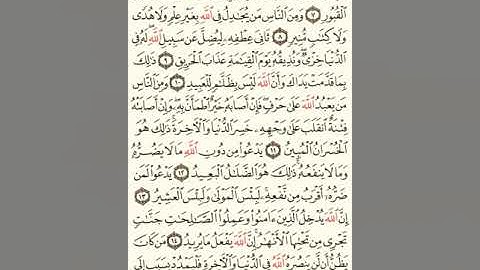 ٱلْقُبُورِ ٧ وَمِنَ ٱلنَّاسِ مَن يُجَٰدِلُ فِى ٱللَّهِ بِغَيْرِ عِلْمٍ وَلَا هُدًى
وَلَا كِتَٰبٍ مُّنِيرٍ ٨ ثَانِىَ عِطْفِهِۦ لِيُضِلَّ عَن سَبِيلِ ٱللَّهِ لَهُۥ فِى
ٱلدُّنْيَا خِزْىٌ وَنُذِيقُهُۥ يَوْمَ ٱلْقِيَٰمَةِ عَذَابَ ٱلْحَرِيقِ ٩ ذَٰلِكَ
بِمَا قَدَّمَتْ يَدَاكَ وَأَنَّ ٱللَّهَ لَيْسَ بِظَلَّٰمٍ لِّلْعَبِيدِ ١٠ وَمِنَ ٱلنَّاسِ
مَن يَعْبُدُ ٱللَّهَ عَلَىٰ حَرْفٍ فَإِنْ أَصَابَهُۥ خَيْرٌ ٱطْمَأَنَّ بِهِۦ وَإِنْ أَصَابَتْهُ
فِتْنَةٌ ٱنقَلَبَ عَلَىٰ وَجْهِهِۦ خَسِرَ ٱلدُّنْيَا وَٱلْءَاخِرَةَ ذَٰلِكَ هُوَ
ٱلْخُسْرَانُ ٱلْمُبِينُ ١١ يَدْعُوا۟ مِن دُونِ ٱللَّهِ مَا لَا يَضُرُّهُۥ
وَمَا لَا يَنفَعُهُۥ ذَٰلِكَ هُوَ ٱلضَّلَٰلُ ٱلْبَعِيدُ ١٢ يَدْعُوا۟ لَمَن
ضَرُّهُۥٓ أَقْرَبُ مِن نَّفْعِهِۦ لَبِئْسَ ٱلْمَوْلَىٰ وَلَبِئْسَ ٱلْعَشِيرُ ١٣
إِنَّ ٱللَّهَ يُدْخِلُ ٱلَّذِينَ ءَامَنُوا۟ وَعَمِلُوا۟ ٱلصَّٰلِحَٰتِ جَنَّٰتٍ
تَجْرِى مِن تَحْتِهَا ٱلْأَنْهَٰرُ إِنَّ ٱللَّهَ يَفْعَلُ مَا يُرِيدُ ١٤ مَن كَانَ
يَظُنُّ أَن لَّن يَنصُرَهُ ٱللَّهُ فِى ٱلدُّنْيَا وَٱلْءَاخِرَةِ فَلْيَمْدُدْ بِسَبَبٍ إِلَى